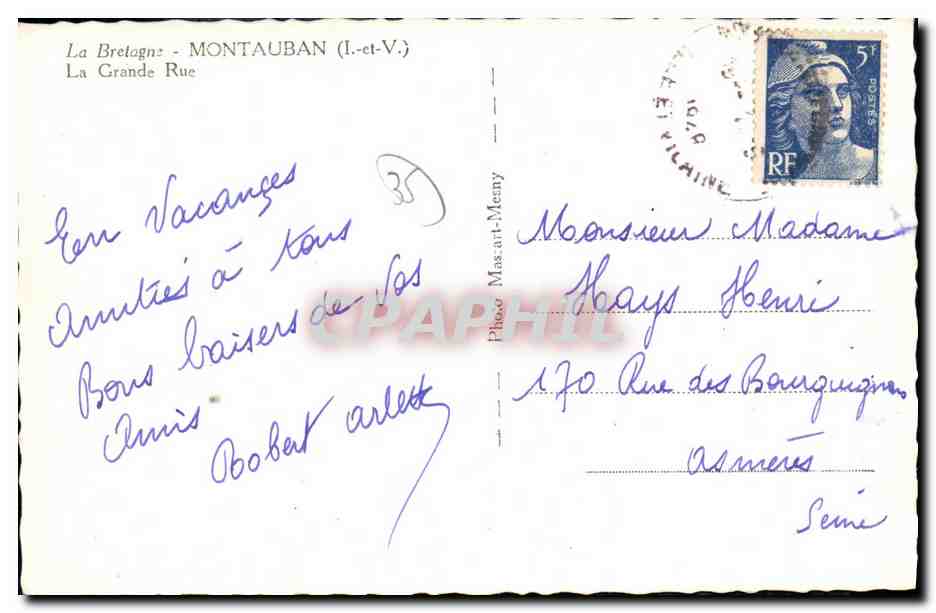 La Bretagne - MONTAUBAN (I.-et-V.)
La Grande Rue
5F
POSTES
RF
35
En Vacances
Amitiés à tous
Bons baisers de Vos
Amis
Robert Arlette
Photo Massart-Mesny
Monsieur Madame
Hays Henri
170 Rue des Bourguignons
Asnières
Seine
CPAPHIL